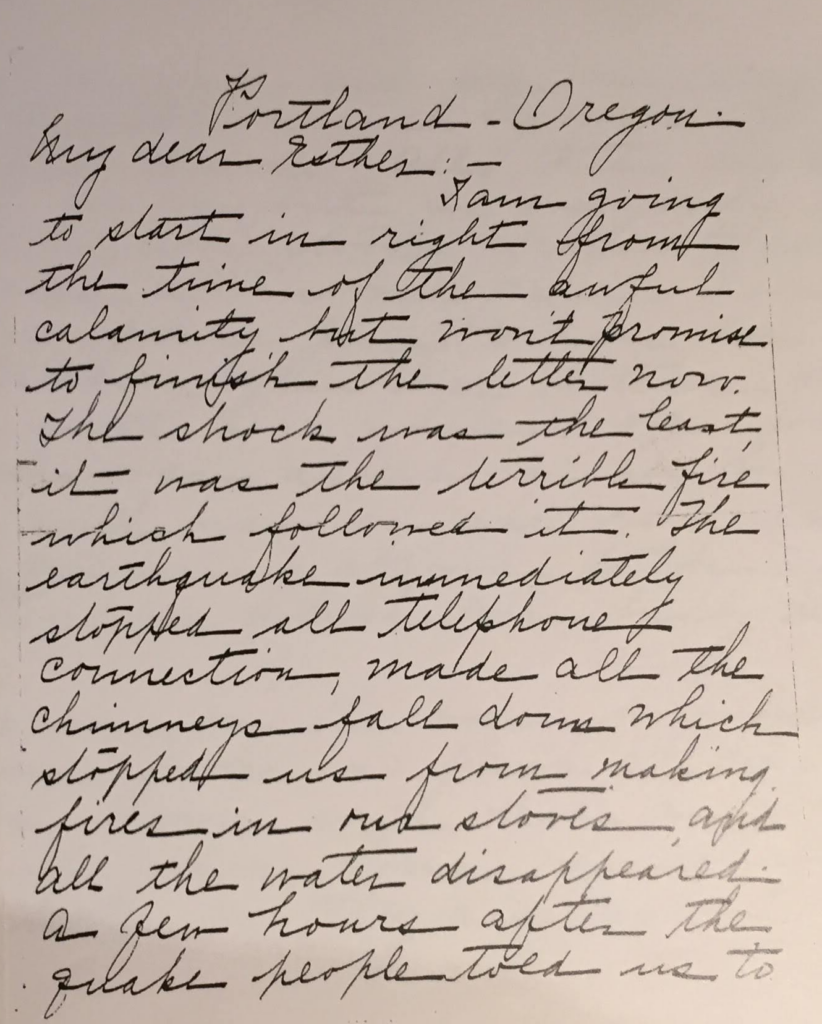 Portland - Oregon.
My dear Esther: -
I am going
to start in right from
the time of the awful
calamity but won't promise
to finish the letter now.
The shock was the least,
it was the terrible fire
which followed it. The
earthquake immediately
stopped all telephone
connection, made all the
chimneys fall down which
stopped us from making
fires in our stoves and
all the water disappeared.
A few hours after the
quake people told us to